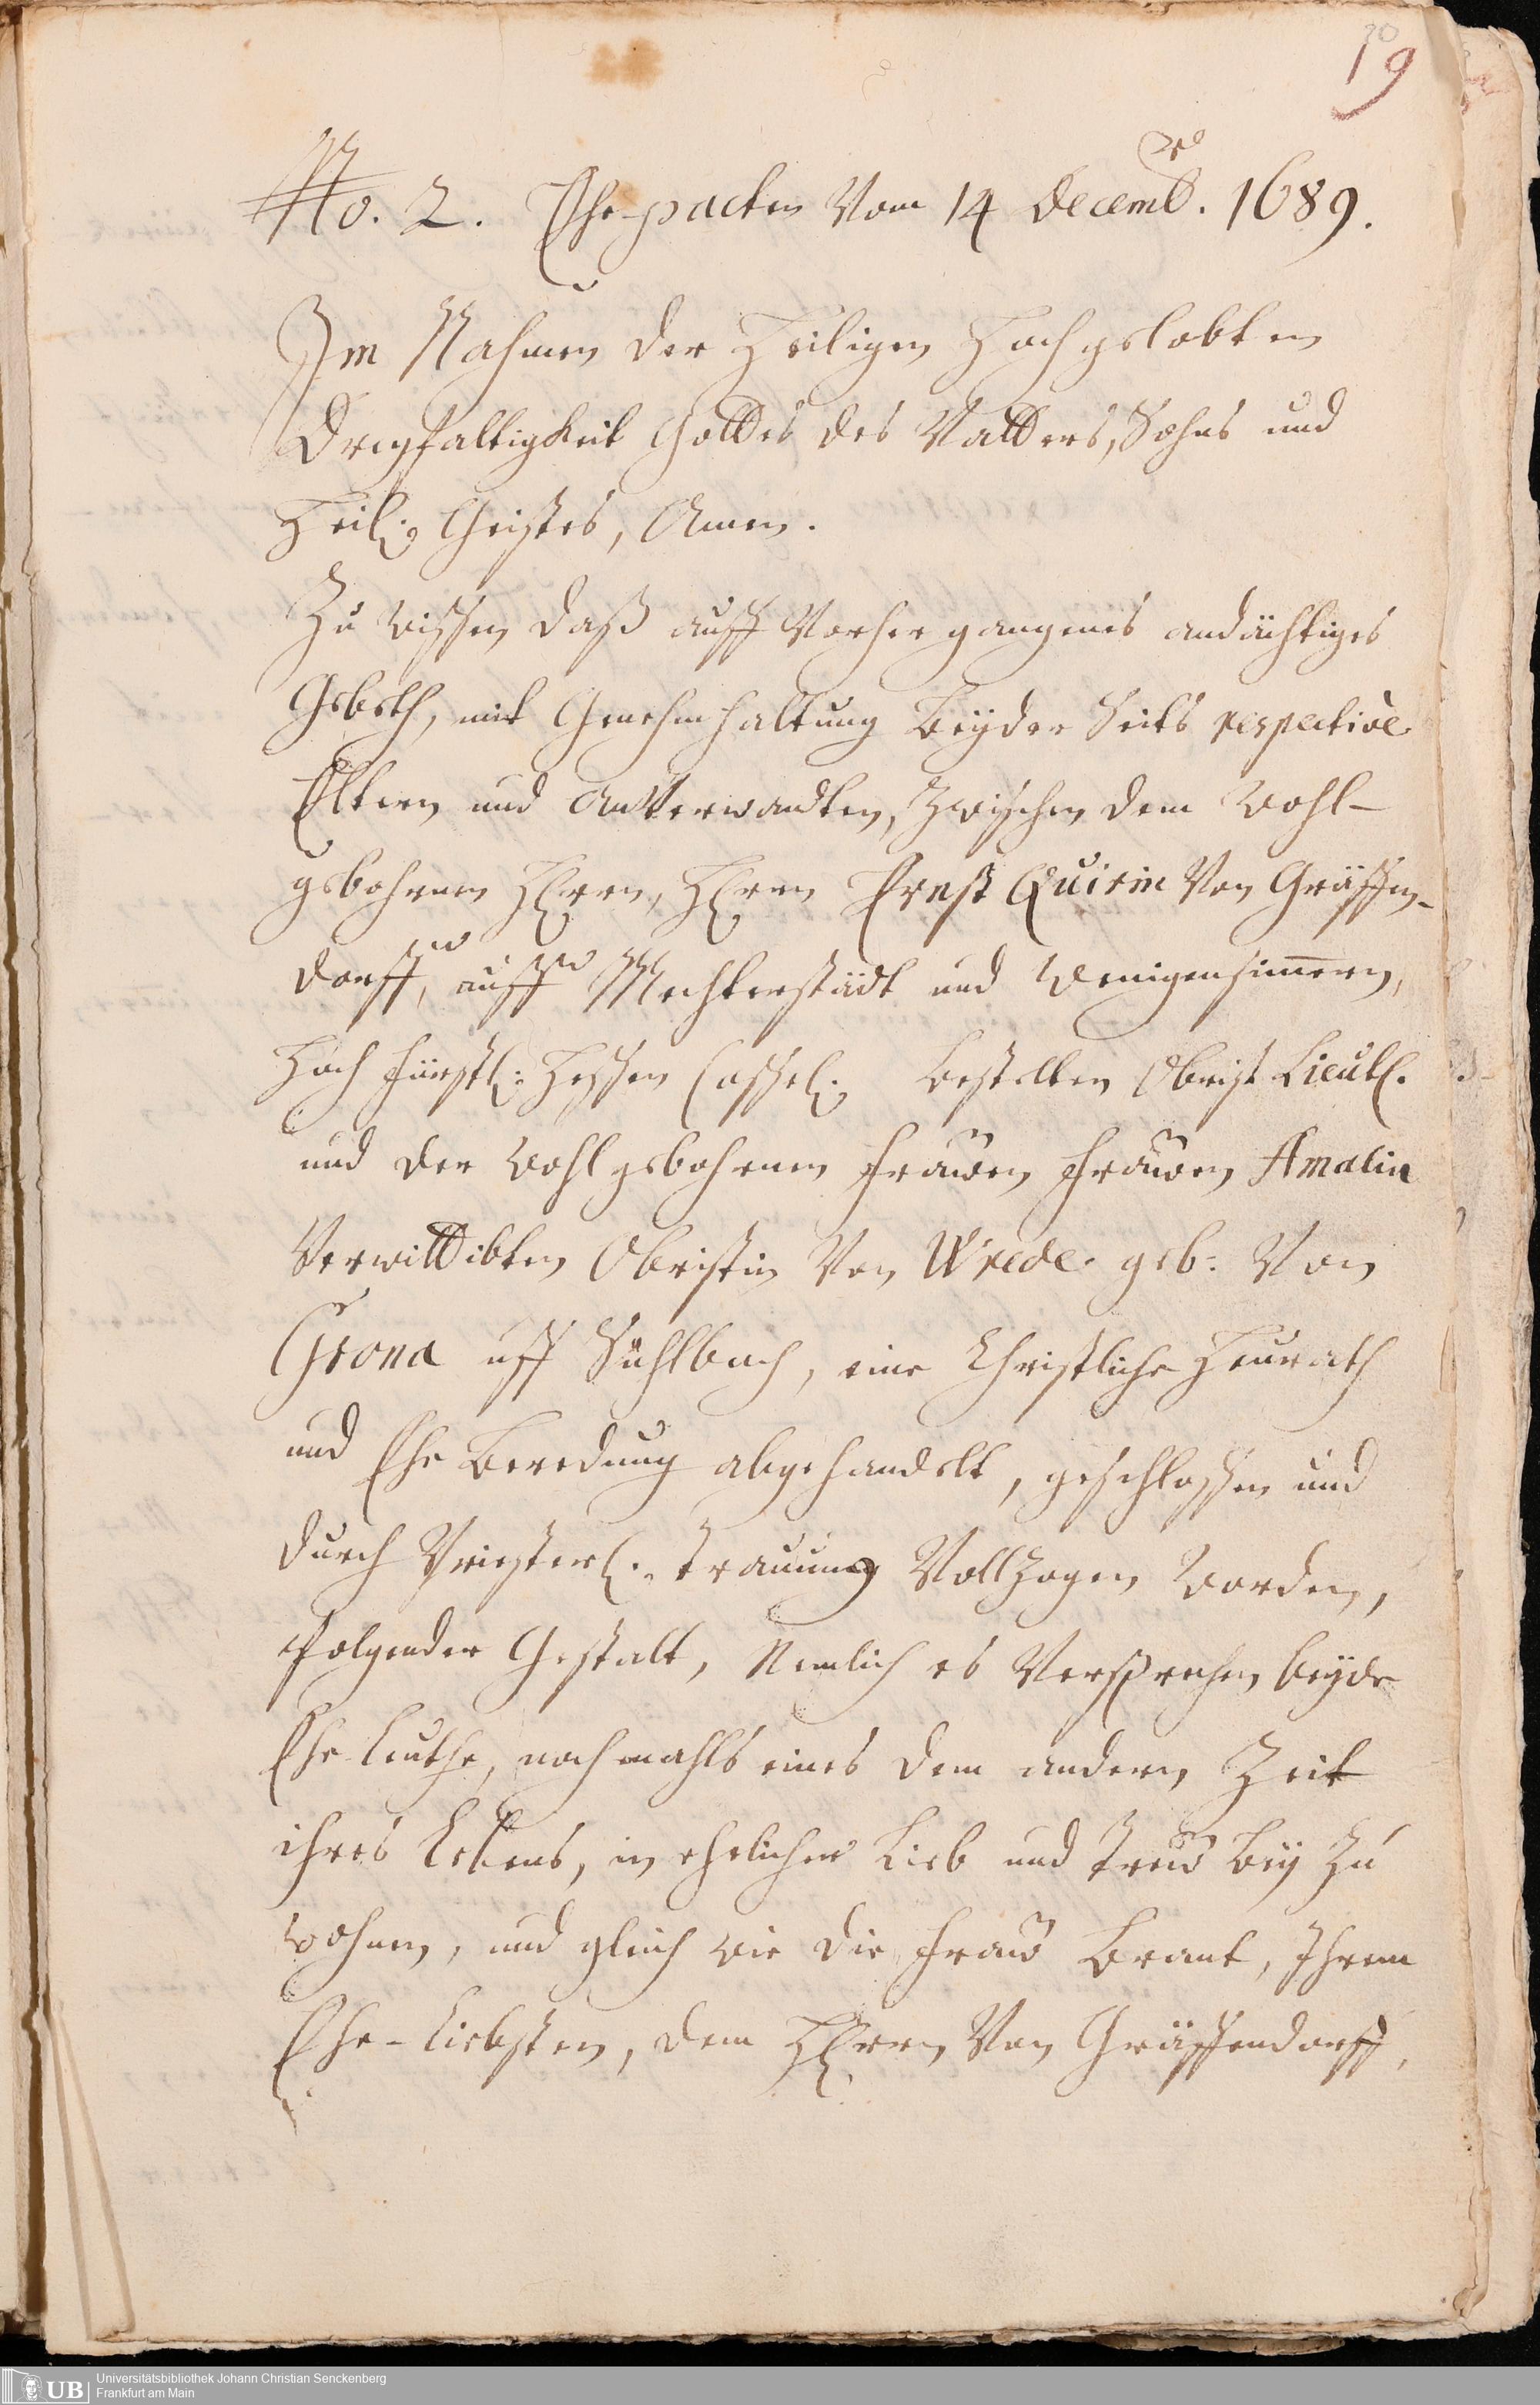 20
19
No. 2. Ehe-pacten Vom 14 Decembr. 1689.
Im Nahmen der Heiligen Hochgelobten
Dreyfaltigkeit Gottes des Vatters, Sohns und
Heil. Geistes, Amen.
Zu wissen daß auff Vorhergangenes andächtiges
Gebeth, mit Genehmhaltung beyder seits respective
Eltern und Anverwandten, Zwischen dem Wohl-
gebohrnen Herrn, Herrn Ernst Quirin Von Gräffen-
dorff, auff Mechterstädt und Wenigensimmern,
Hoch fürstl. Hessen Cassel. bestelten Obrist Lieutl.
und der Wohlgebohrnen frawen frawen Amalia
Verwittibten Obristin Von Wrede. geb. Von
Grona uff Sühlbach, eine Christliche Heurath
und Ehe Beredung abgehandelt, geschlossen und
durch Priesterl. Trauung Vollzogen worden,
folgender Gestalt, Nemlich es Versprechen beyde
Ehe Leuthe, nochmahls eines dem andern Zeit
ihres Lebens, in ehelicher Lieb und Trew bey Zu
wohnen, und gleich wie die fraw Braut, Ihrem
Ehe-Liebsten, dem Herrn Von Gräffendorff,
UB
Universitätsbibliothek Johann Christian Senckenberg
Frankfurt am Main